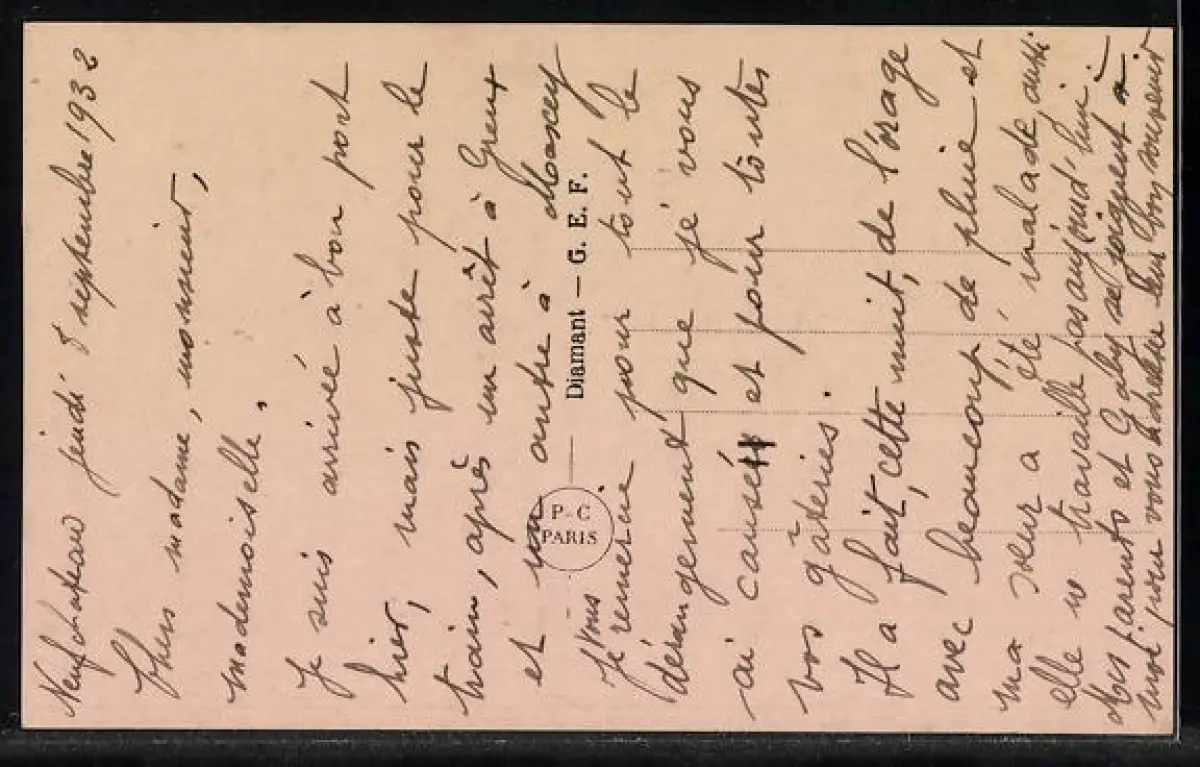 Neufchateau jeudi 8 septembre 1932
Chers madame, monsieur,
mademoiselle.
Je suis arrivée à bon port
hier, mais juste pour le
train, après un arrêt à Greux
et un autre à Maxey
Je vous remercie pour tout le
dérangement que je vous
ai causé et pour toutes
vos gâteries.
Il a fait, cette nuit, de l'orage
avec beaucoup de pluie et
ma sœur a été malade, aussi
elle ne travaille pas aujourd'hui.
Mes parents et Gaby se joignent à
moi pour vous adresser leur bon souvenir
Diamant — G. E. F.
P-C
PARIS